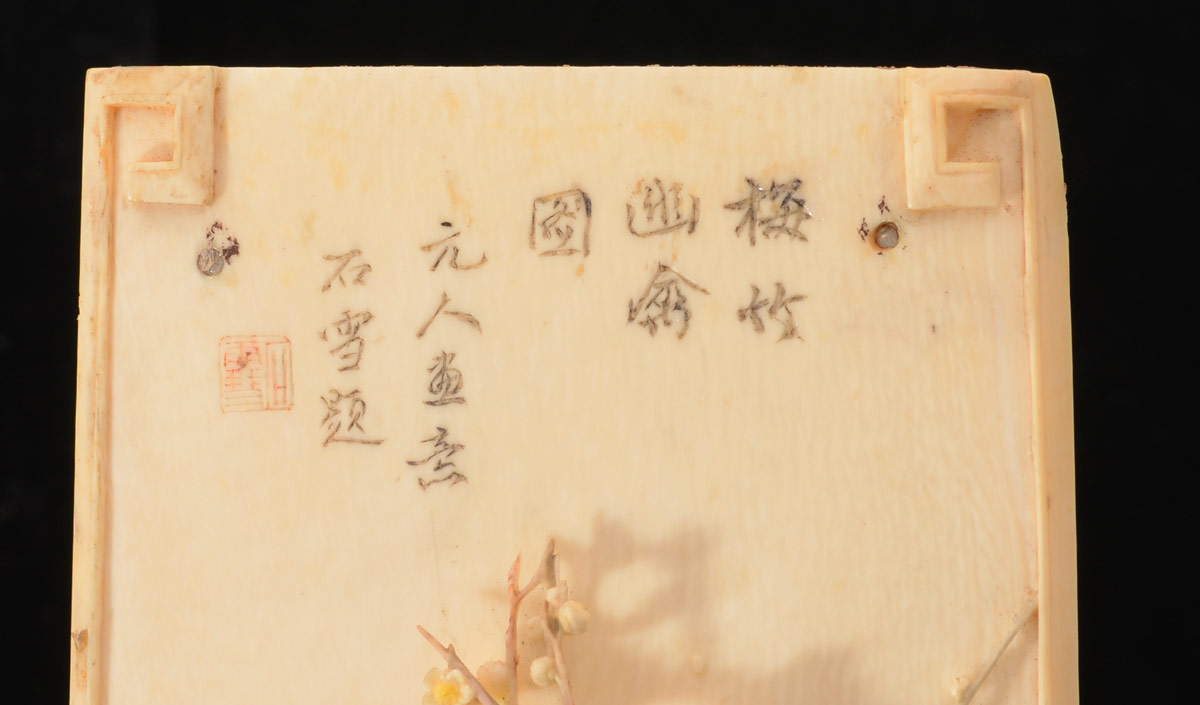 梅竹
幽禽
圖
元人畫意
石雪題